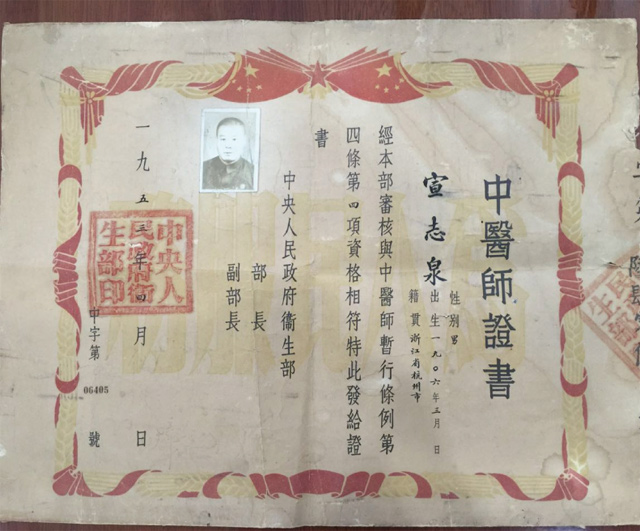 中醫師證書
宣志泉
性別男
出生一九〇六年三月 日
籍貫浙江省杭州市
經本部審核與中醫師暫行條例第
四條第四項資格相符特此發給證
書
中央人民政府衞生部
部長
副部長
一九五三年四月 日
中央人
民政府衞
生部印
中字第
06405
號